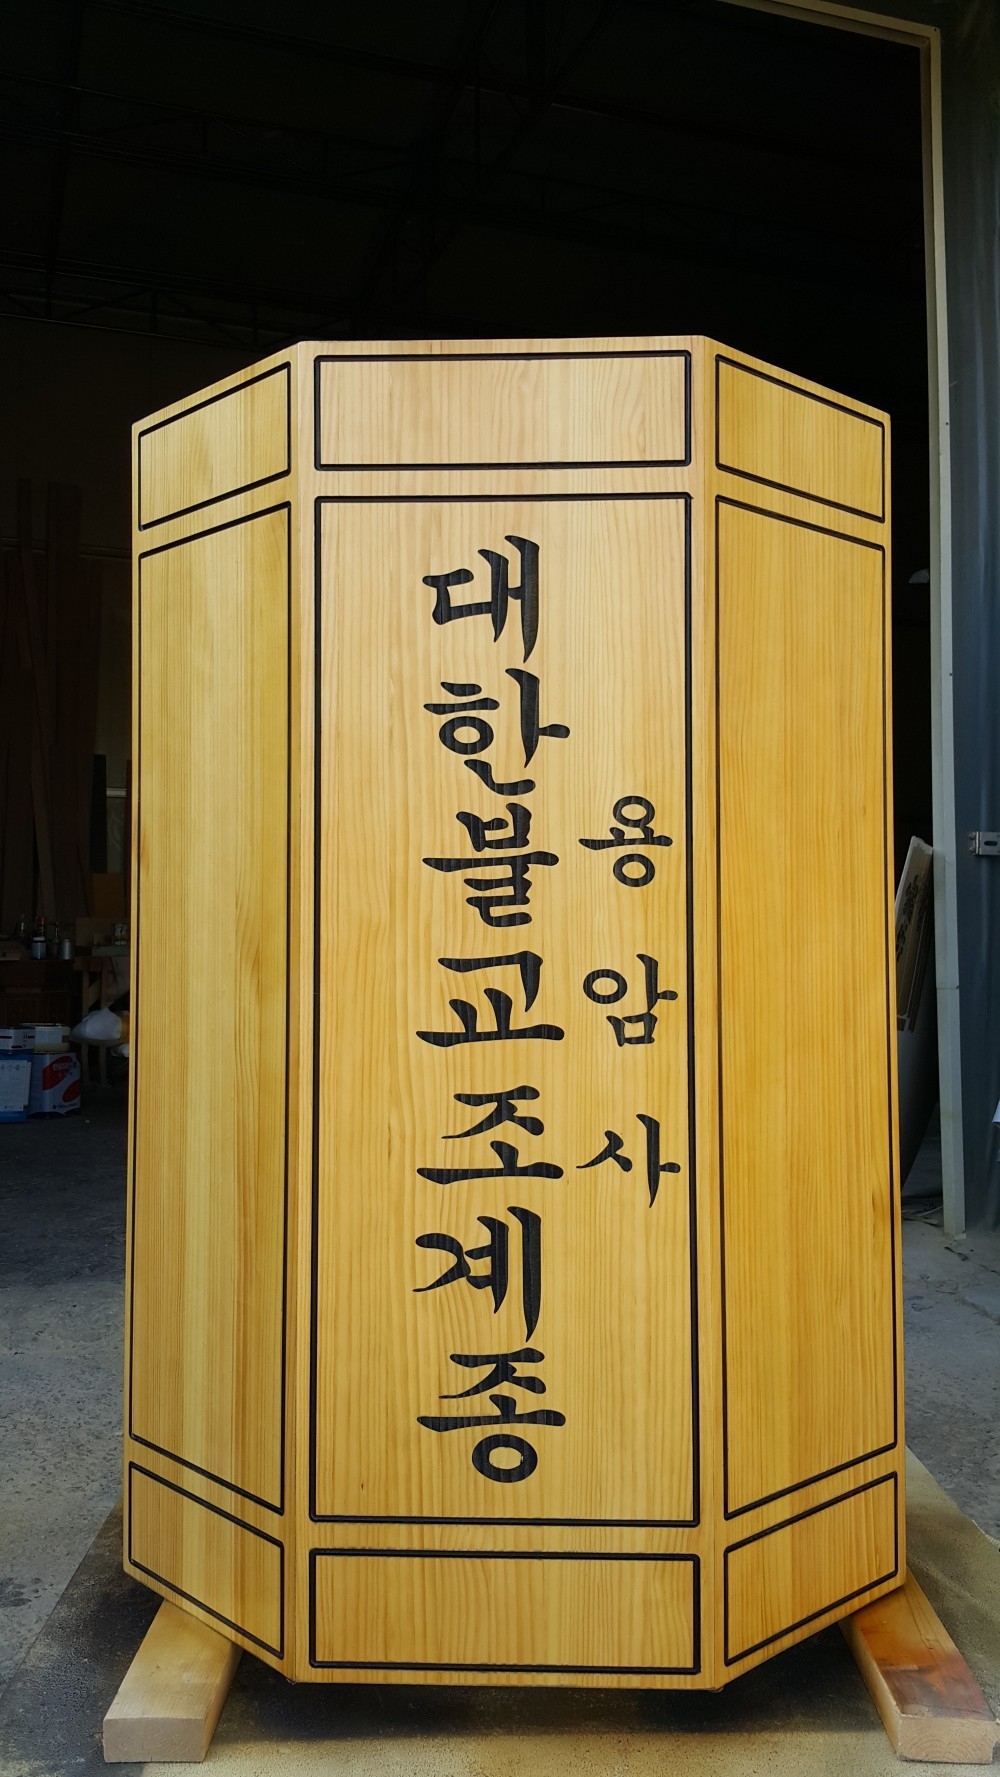 대한불교조계종
용암사